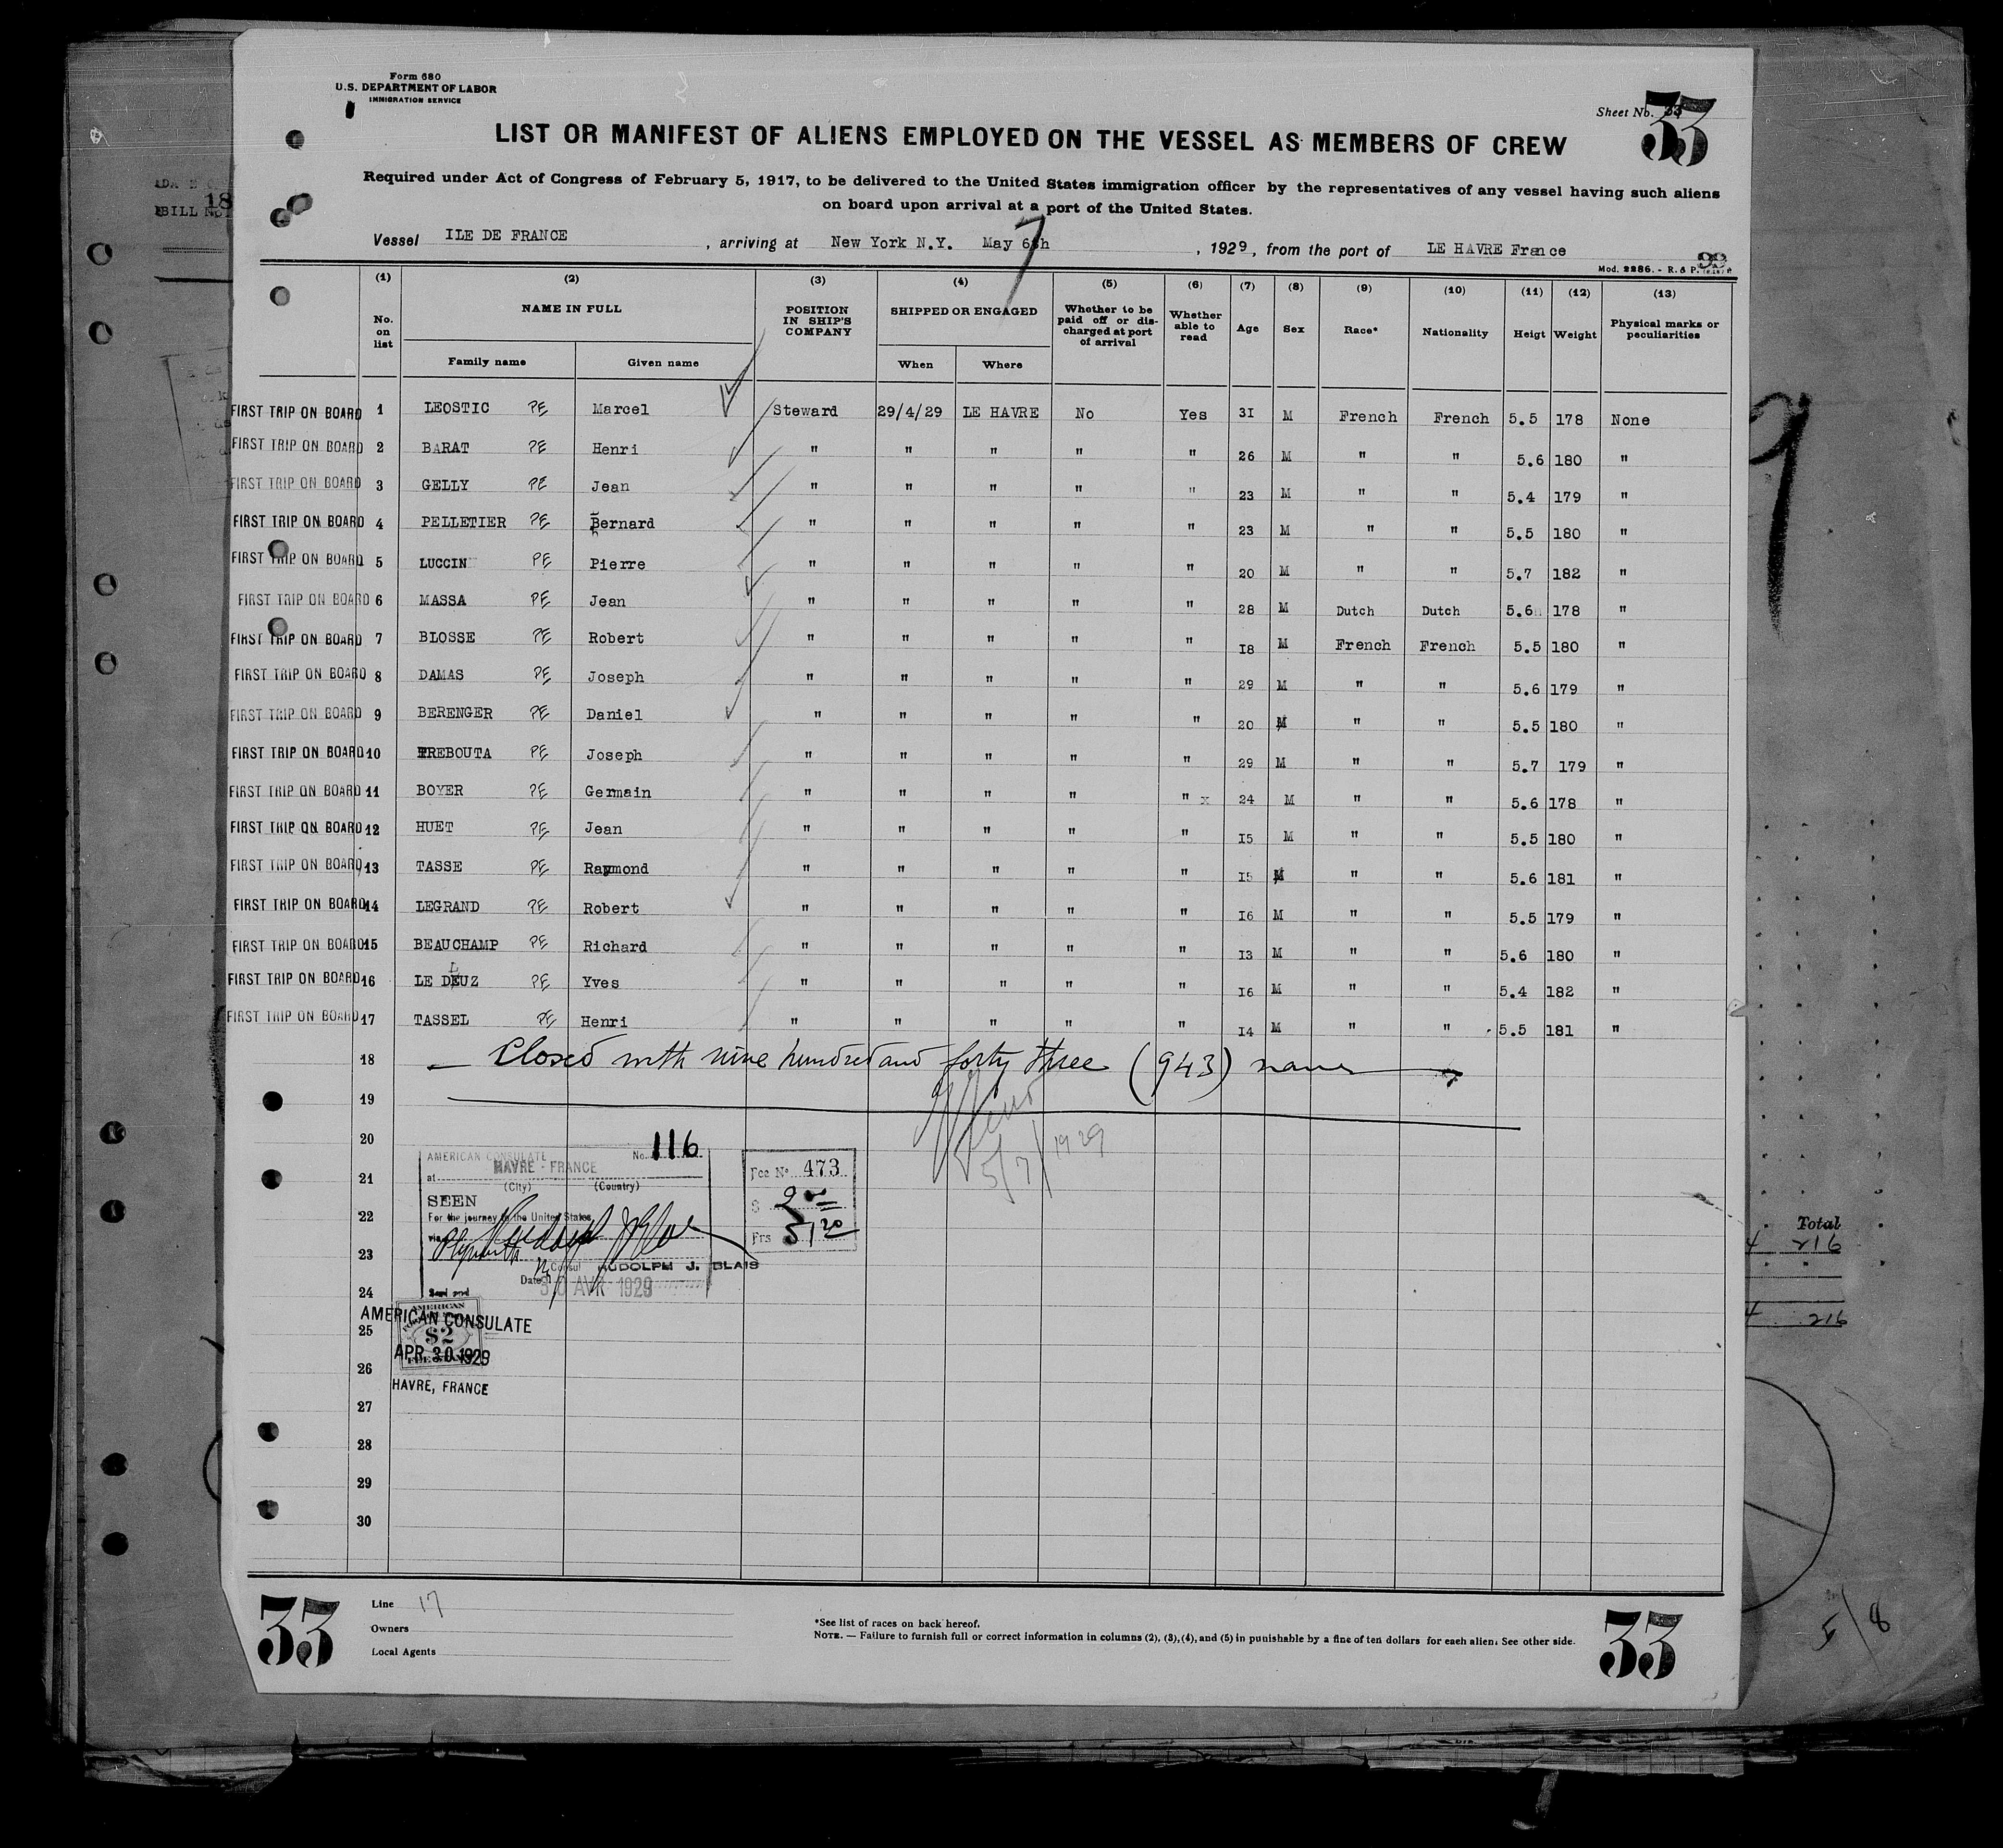 Form 680
U.S. DEPARTMENT OF LABOR
IMMIGRATION SERVICE
Sheet No. 33
LIST OR MANIFEST OF ALIENS EMPLOYED ON THE VESSEL AS MEMBERS OF CREW
Required under Act of Congress of February 5, 1917, to be delivered to the United States immigration officer by the representatives of any vessel having such aliens
on board upon arrival at a port of the United States.
Vessel ILE DE FRANCE , arriving at New York N.Y. May 6th 7 , 1929, from the port of LE HAVRE France
Mod. 2286. - R. & P.
(1) (2) (3) (4) (5) (6) (7) (8) (9) (10) (11) (12) (13)
No. on list NAME IN FULL POSITION IN SHIP'S COMPANY SHIPPED OR ENGAGED Whether to be paid off or discharged at port of arrival Whether able to read Age Sex Race* Nationality Heigt Weight Physical marks or peculiarities
Family name Given name When Where
FIRST TRIP ON BOARD 1 LEOSTIC PE Marcel Steward 29/4/29 LE HAVRE No Yes 3I M French French 5.5 178 None
FIRST TRIP ON BOARD 2 BARAT PE Henri " " " " " 26 M " " 5.6 180 "
FIRST TRIP ON BOARD 3 GELLY PE Jean " " " " " 23 M " " 5.4 179 "
FIRST TRIP ON BOARD 4 PELLETIER PE Bernard " " " " " 23 M " " 5.5 180 "
FIRST TRIP ON BOARD 5 LUCCIN PE Pierre " " " " " 20 M " " 5.7 182 "
FIRST TRIP ON BOARD 6 MASSA PE Jean " " " " " 28 M Dutch Dutch 5.6 178 "
FIRST TRIP ON BOARD 7 BLOSSE PE Robert " " " " " I8 M French French 5.5 180 "
FIRST TRIP ON BOARD 8 DAMAS PE Joseph " " " " " 29 M " " 5.6 179 "
FIRST TRIP ON BOARD 9 BERENGER PE Daniel " " " " " 20 M " " 5.5 180 "
FIRST TRIP ON BOARD 10 TREBOUTA PE Joseph " " " " " 29 M " " 5.7 179 "
FIRST TRIP ON BOARD 11 BOYER PE Germain " " " " " x 24 M " " 5.6 178 "
FIRST TRIP ON BOARD 12 HUET PE Jean " " " " " I5 M " " 5.5 180 "
FIRST TRIP ON BOARD 13 TASSE PE Raymond " " " " " I5 M " " 5.6 181 "
FIRST TRIP ON BOARD 14 LEGRAND PE Robert " " " " " I6 M " " 5.5 179 "
FIRST TRIP ON BOARD 15 BEAUCHAMP PE Richard " " " " " I3 M " " 5.6 180 "
FIRST TRIP ON BOARD 16 LE DEUZ PE Yves " " " " " I6 M " " 5.4 182 "
FIRST TRIP ON BOARD 17 TASSEL PE Henri " " " " " I4 M " " 5.5 181 "
18 Closed with nine hundred and forty three (943) names
19
20
5/7/1929
AMERICAN CONSULATE No. 116
at HAVRE - FRANCE
(City) (Country)
21
SEEN
22
For the journey to the United States
via Plymouth
23
Consul RUDOLPH J. BLAIS
Date 30 AVR 1929
24
Fee No. 473
$ 2.00
Frs 51.20
AMERICAN
AMERICAN CONSULATE
25
$2
APR 30 1929
26
HAVRE, FRANCE
27
28
29
30
33
Line 17
Owners
Local Agents
*See list of races on back hereof.
NOTE. — Failure to furnish full or correct information in columns (2), (3), (4), and (5) in punishable by a fine of ten dollars for each alien. See other side.
33
BILL No
18
Total
216
216
5/8